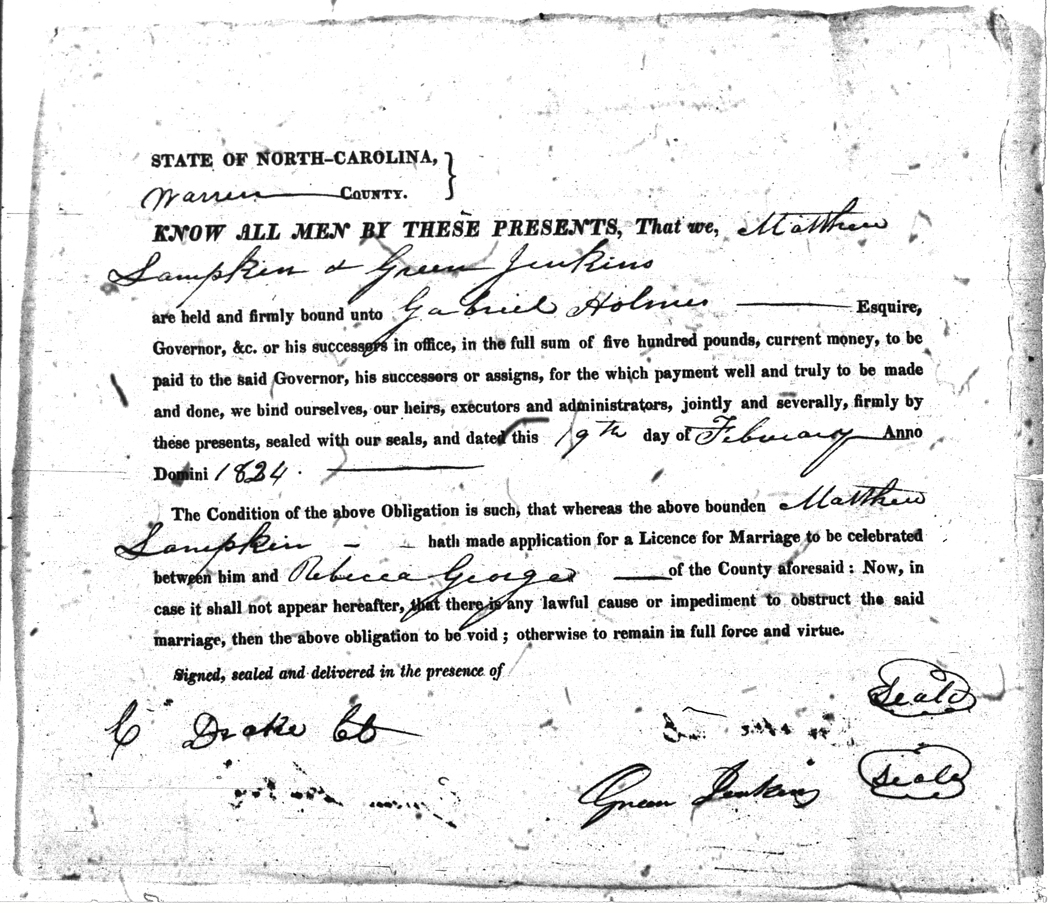 STATE OF NORTH-CAROLINA, }
Warren COUNTY.
KNOW ALL MEN BY THESE PRESENTS, That we, Matthew
Lampkin & Green Jenkins
are held and firmly bound unto Gabriel Holmes Esquire,
Governor, &c. or his successors in office, in the full sum of five hundred pounds, current money, to be
paid to the said Governor, his successors or assigns, for the which payment well and truly to be made
and done, we bind ourselves, our heirs, executors and administrators, jointly and severally, firmly by
these presents, sealed with our seals, and dated this 19th day of February Anno
Domini 1824.
The Condition of the above Obligation is such, that whereas the above bounden Matthew
Lampkin hath made application for a Licence for Marriage to be celebrated
between him and Rebecca George of the County aforesaid: Now, in
case it shall not appear hereafter, that there is any lawful cause or impediment to obstruct the said
marriage, then the above obligation to be void; otherwise to remain in full force and virtue.
Signed, sealed and delivered in the presence of
Seal
C Drake
Green Jenkins Seal